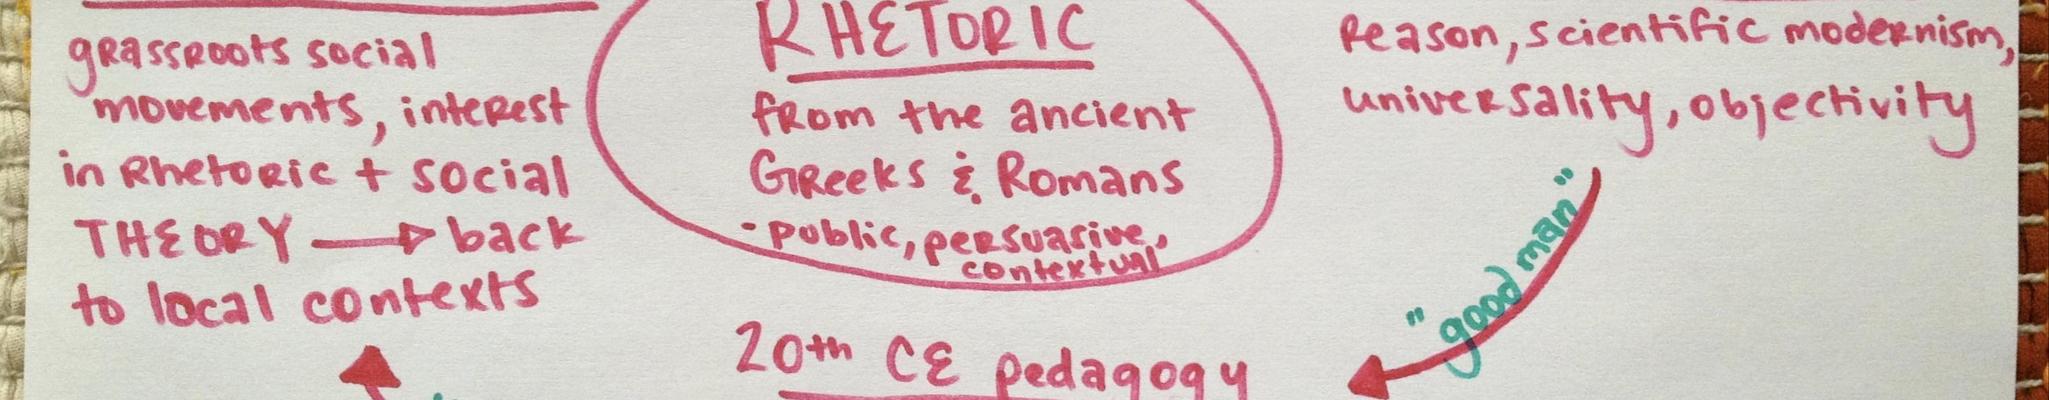 grassroots social
movements, interest
in Rhetoric + social
THEORY → back
to local contexts
RHETORIC
from the ancient
Greeks & Romans
- public, persuasive,
contextual
20th CE pedagogy
Reason, scientific modernism,
universality, objectivity
"good man"